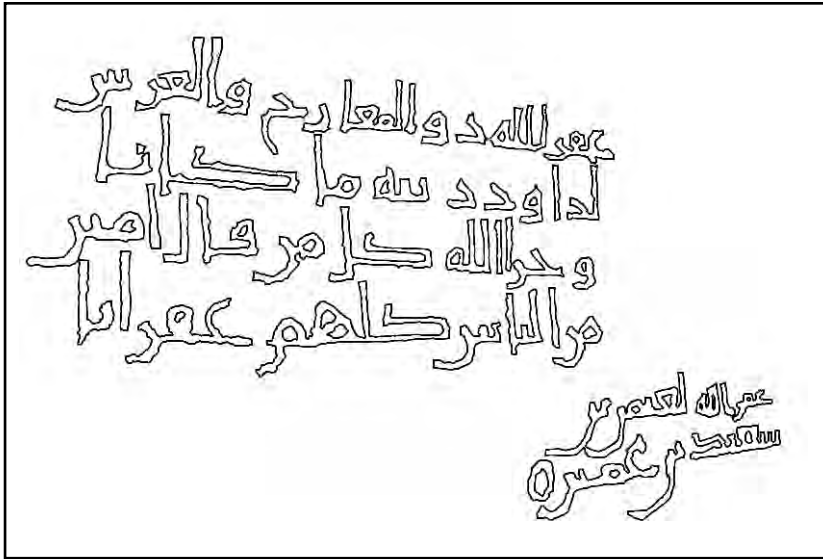 غفر الله ذو المعارج والعرش
لداود ذنبه ما كانا
وجز الله كل من قال امين
من الناس كلهم غفرانا
غفر الله
سعيد بن عميره